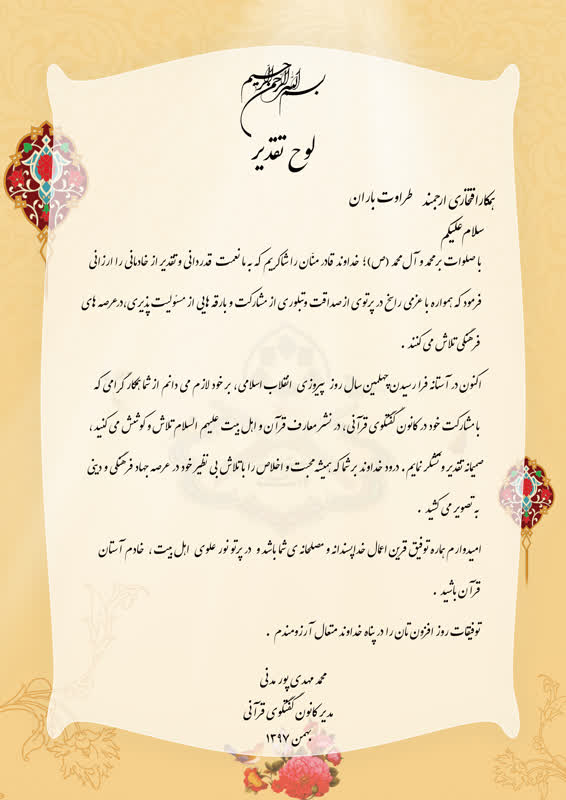 بسم الله الرحمن الرحیم
لوح تقدیر
همکار افتخاری ارجمند طراوت باران
سلام علیکم
با صلوات بر محمد و آل محمد (ص)؛ خداوند قادر منّان را شاکریم که به ما نعمت قدردانی و تقدیر از خادمانی را ارزانی
فرمود که همواره با عزمی راسخ در پرتوی از صداقت و تبلوری از مشارکت و بارقه هایی از مسئولیت پذیری، در عرصه های
فرهنگی تلاش می کنند .
اکنون در آستانه فرا رسیدن چهلمین سال روز پیروزی انقلاب اسلامی، بر خود لازم می دانم از شما همکار گرامی که
با مشارکت خود در کانون گفتگوی قرآنی، در نشر معارف قرآن و اهل بیت علیهم السلام تلاش و کوشش می کنید ،
صمیمانه تقدیر و تشکر نمایم . درود خداوند بر شما که همیشه محبت و اخلاص را با تلاش بی نظیر خود در عرصه جهاد فرهنگی و دینی
به تصویر می کشید .
امیدوارم هماره توفیق قرین اعمال خداپسندانه و مصلحانه ی شما باشد و در پرتو نور علوی اهل بیت ، خادم آستان
قرآن باشید .
توفیقات روز افزون تان را در پناه خداوند متعال آرزومندم .
محمد مهدی پور مدنی
مدیر کانون گفتگوی قرآنی
بهمن ۱۳۹۷